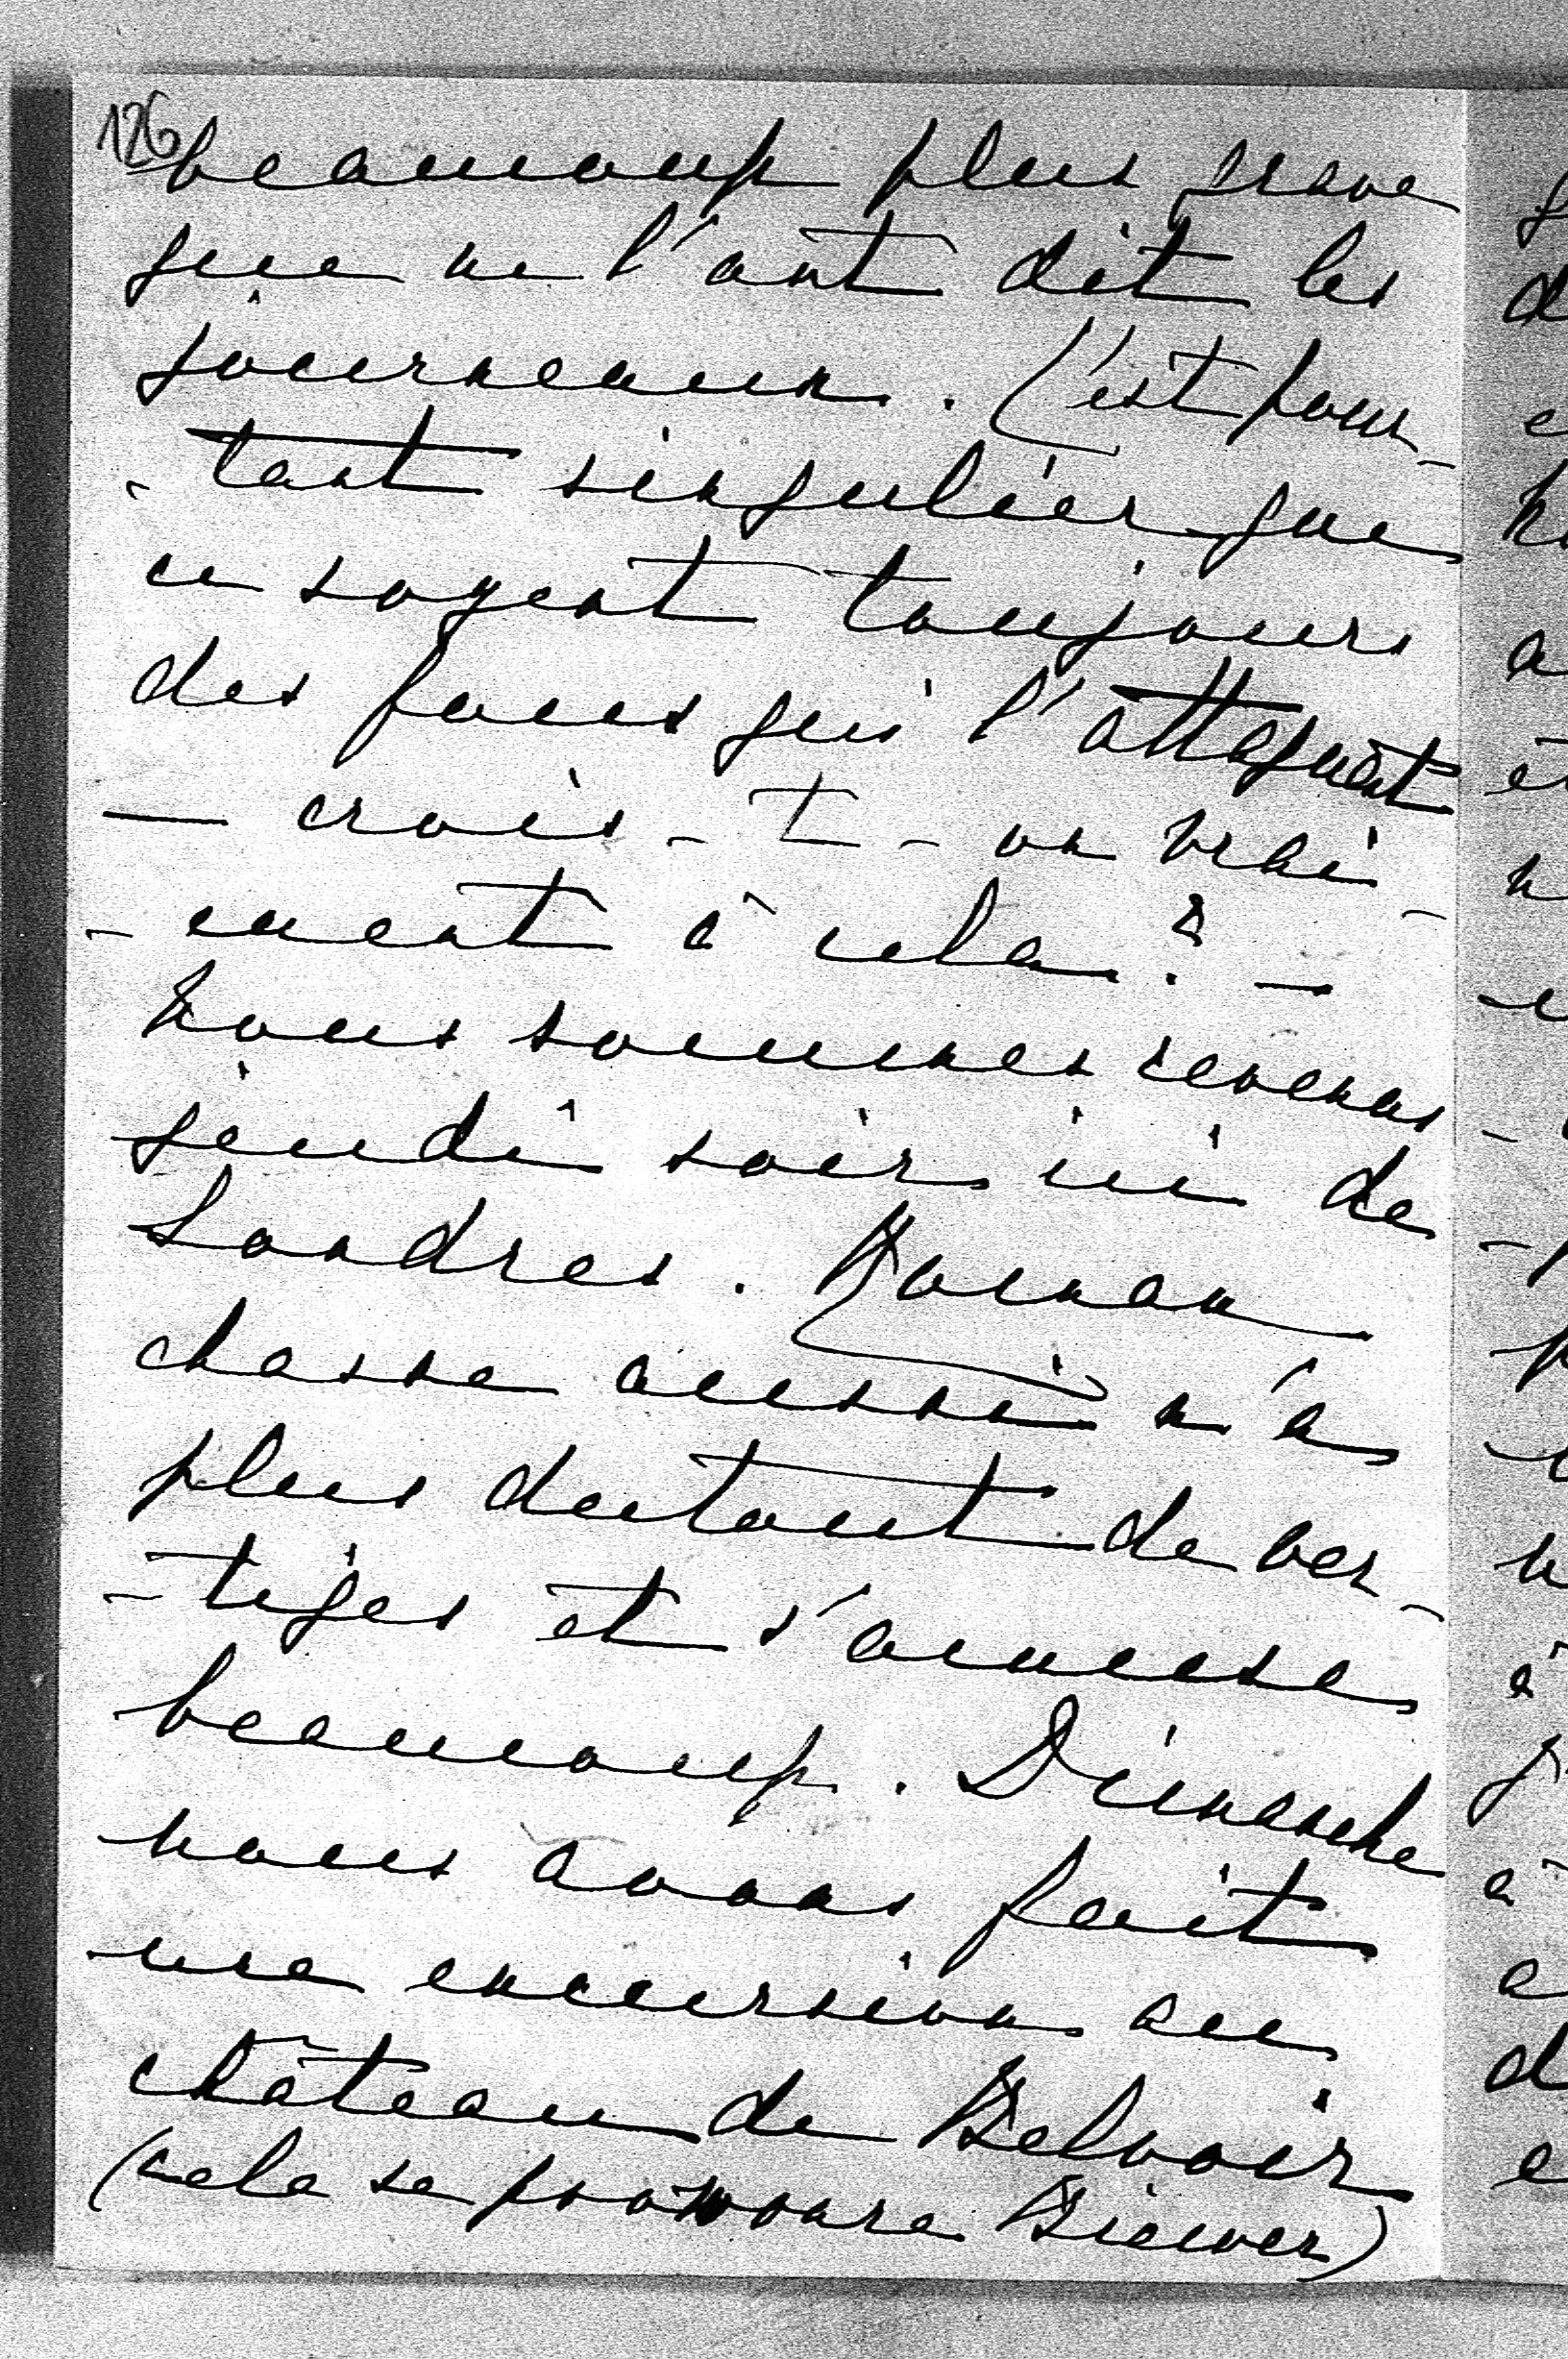 126
beaucoup plus grave
que ne l'ont dit les
journeaux. C'est pour-
-tant singulier que
ce soyent toujours
des fous qui l'attaquent
— crois-t-on vrai-
-ment à cela? —
Nous sommes revenus
jeudi soir ici de
Londres.
chasse aussi n'a
plus dutout de ver-
-tiges et s'amuse
beaucoup. Dimanche
nous avons fait
une excursion au
château de Belvoir
(cela se prononce Biewer)